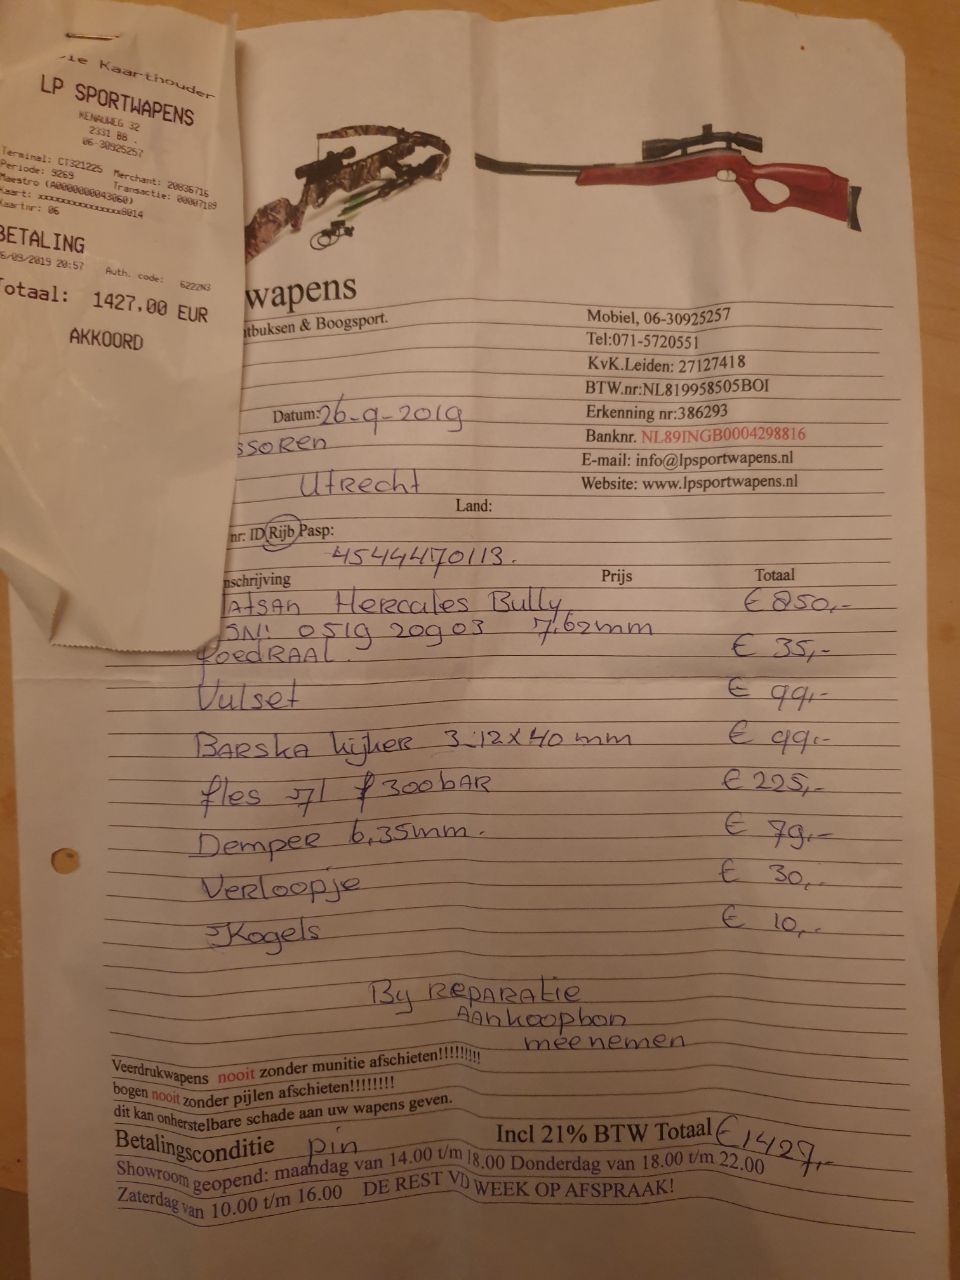 Kaarthouder
LP SPORTWAPENS
KENAUWEG 32
2331 BB .
06-30925257
Terminal: CT321225 Merchant: 20836716
Periode: 9269 Transactie: 00007189
Maestro (A0000000043060)
Kaart: xxxxxxxxxxxxxxx8014
Kaartnr: 06
BETALING
6/09/2019 20:57 Auth. code: 6222N3
Totaal: 1427,00 EUR
AKKOORD
wapens
tbuksen & Boogsport.
Mobiel, 06-30925257
Tel:071-5720551
KvK.Leiden: 27127418
BTW.nr:NL819958505BOI
Erkenning nr:386293
Banknr. NL89INGB0004298816
E-mail: info@lpsportwapens.nl
Website: www.lpsportwapens.nl
Datum: 26-9-2019
ssoren
Utrecht
Land:
nr: ID Rijb Pasp:
4544470113.
nschrijving Prijs Totaal
atsan Hercules Bully € 850,-
SN: 0519 20903 7,62mm
foedraal. € 35,-
Vulset € 99,-
Barska kijker 3-12x40mm € 99,-
fles 7l 300bar € 225,-
Demper 6,35mm. € 79,-
Verloopje € 30,-
Kogels € 10,-
By reparatie
Aankoopbon
meenemen
Veerdrukwapens nooit zonder munitie afschieten!!!!!!!!!
bogen nooit zonder pijlen afschieten!!!!!!!!
dit kan onherstelbare schade aan uw wapens geven.
Betalingsconditie pin Incl 21% BTW Totaal € 1427,-
Showroom geopend: maandag van 14.00 t/m 18.00 Donderdag van 18.00 t/m 22.00
Zaterdag van 10.00 t/m 16.00 DE REST VD WEEK OP AFSPRAAK!